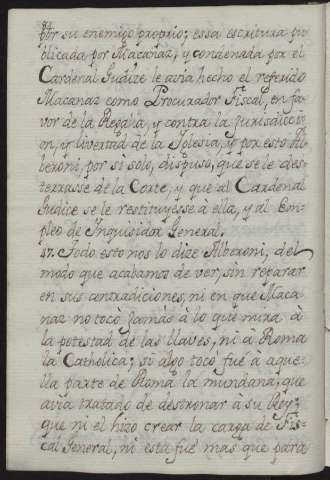 por su enemigo proprio; essa escritura pu
blicada por Macanaz, y condenada por el
Cardenal Judize le avia hecho el referido
Macanaz como Procurador Fiscal, en fa
vor de la Regalia, y contra la Jurisdicci
on, y livertad de la Iglesia, y por esto Al
beroni, por si solo, dispuso, que se le des
terrasse de la Corte, y que al Cardenal
Judice se le restituyesse à ella, y al Em
pleo de Inquisidor General.
57. Todo esto nos lo dize Alberoni, del
modo que acabamos de ver, sin reparar
en sus contradiciones, ni en que Maca
naz no tocò jamàs à lo que mira à
la potestad de las llaves, ni à Roma
la Catholica; si algo tocò fué à aque
lla parte de Roma la mundana, que
avia tratado de destronar à su Rey;
que ni el hizo crear la carga de Fis
cal General, ni esta fué mas que para